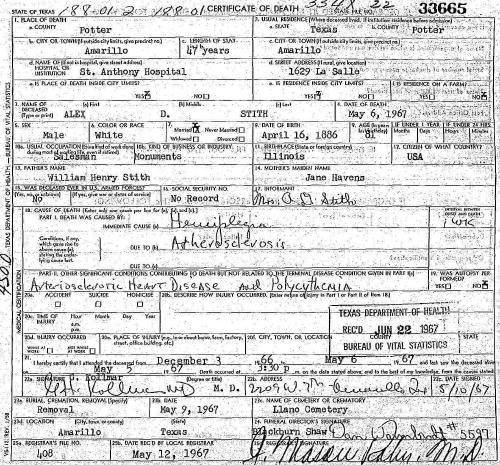 STATE OF TEXAS 188-01-2 188-01 CERTIFICATE OF DEATH 33665
1. PLACE OF DEATH 2. USUAL RESIDENCE (Where deceased lived. If institution: residence before admission)
a. COUNTY Potter a. STATE Texas b. COUNTY Potter
b. CITY OR TOWN (If outside city limits, give precinct no.) Amarillo c. LENGTH OF STAY 47 years c. CITY OR TOWN (If outside city limits, give precinct no.) Amarillo
d. NAME OF (If not in hospital, give street address) HOSPITAL OR INSTITUTION St. Anthony Hospital d. STREET ADDRESS (If rural, give location) 1629 La Salle
e. IS PLACE OF DEATH INSIDE CITY LIMITS? YES NO e. IS RESIDENCE INSIDE CITY LIMITS? YES NO f. IS RESIDENCE ON A FARM? YES NO
3. NAME OF DECEASED (Type or Print) (a) First ALEX (b) Middle D. (c) Last STITH 4. DATE OF DEATH May 6, 1967
5. SEX Male 6. COLOR OR RACE White 7. Married Never Married Widowed Divorced 8. DATE OF BIRTH April 16, 1886 9. AGE IF UNDER 1 YEAR Months Days IF UNDER 24 HRS. Hours
10a. USUAL OCCUPATION (Give kind of work done during most of working life, even if retired) Salesman 10b. KIND OF BUSINESS OR INDUSTRY Monuments 11. BIRTHPLACE (State or foreign country) Illinois 12. CITIZEN OF WHAT COUNTRY? USA
13. FATHER'S NAME William Henry Stith 14. MOTHER'S MAIDEN NAME Jane Havens
15. WAS DECEASED EVER IN U.S. ARMED FORCES? (Yes, no, or unknown) (If yes, give war or dates of service) No 16. SOCIAL SECURITY NO. No Record 17. INFORMANT Mrs. A. D. Stith
18. CAUSE OF DEATH [Enter only one cause per line for (a), (b), and (c).] INTERVAL BETWEEN ONSET AND DEATH
PART I. DEATH WAS CAUSED BY:
IMMEDIATE CAUSE (a) Hemiplegia 1 WK
Conditions, if any, which gave rise to above cause (a), stating the underlying cause last. DUE TO (b) Atherosclerosis
DUE TO (c)
PART II. OTHER SIGNIFICANT CONDITIONS CONTRIBUTING TO DEATH BUT NOT RELATED TO THE TERMINAL DISEASE CONDITION GIVEN IN PART I(a) 19. WAS AUTOPSY PERFORMED? YES NO
Arteriosclerotic Heart Disease and Polycythemia
20a. ACCIDENT SUICIDE HOMICIDE 20b. DESCRIBE HOW INJURY OCCURRED. (Enter nature of injury in Part I or Part II of item 18)
20c. TIME OF INJURY Hour a.m. p.m. Month Day Year
TEXAS DEPARTMENT OF HEALTH
REC'D JUN 22 1967
BUREAU OF VITAL STATISTICS
20d. INJURY OCCURRED WHILE AT WORK NOT WHILE AT WORK 20e. PLACE OF INJURY (e.g., in or about home, farm, factory, street, office building, etc.) 20f. CITY, TOWN, OR LOCATION COUNTY STATE
21. I hereby certify that I attended the deceased from December 3 1966 to May 6 1967 and last saw the deceased alive
May 5 1967 Death occurred at 3:30 p m. on the date stated above; and to the best of my knowledge, from the causes stated.
22a. SIGNATURE Kollmar (Degree or title) M. D. 22b. ADDRESS 2209 W. 7th Amarillo Tx 22c. DATE SIGNED 5/10/67
23a. BURIAL, CREMATION, REMOVAL (Specify) Removal 23b. DATE May 9, 1967 23c. NAME OF CEMETERY OR CREMATORY Llano Cemetery
23d. LOCATION (City, town, or county) (State) Amarillo Texas 24. FUNERAL DIRECTOR'S SIGNATURE Blackburn Shaw #5597
25a. REGISTRAR'S FILE NO. 408 25b. DATE REC'D BY LOCAL REGISTRAR May 12, 1967 25c. REGISTRAR'S SIGNATURE
TEXAS DEPARTMENT OF HEALTH — BUREAU OF VITAL STATISTICS
MEDICAL CERTIFICATION
4500